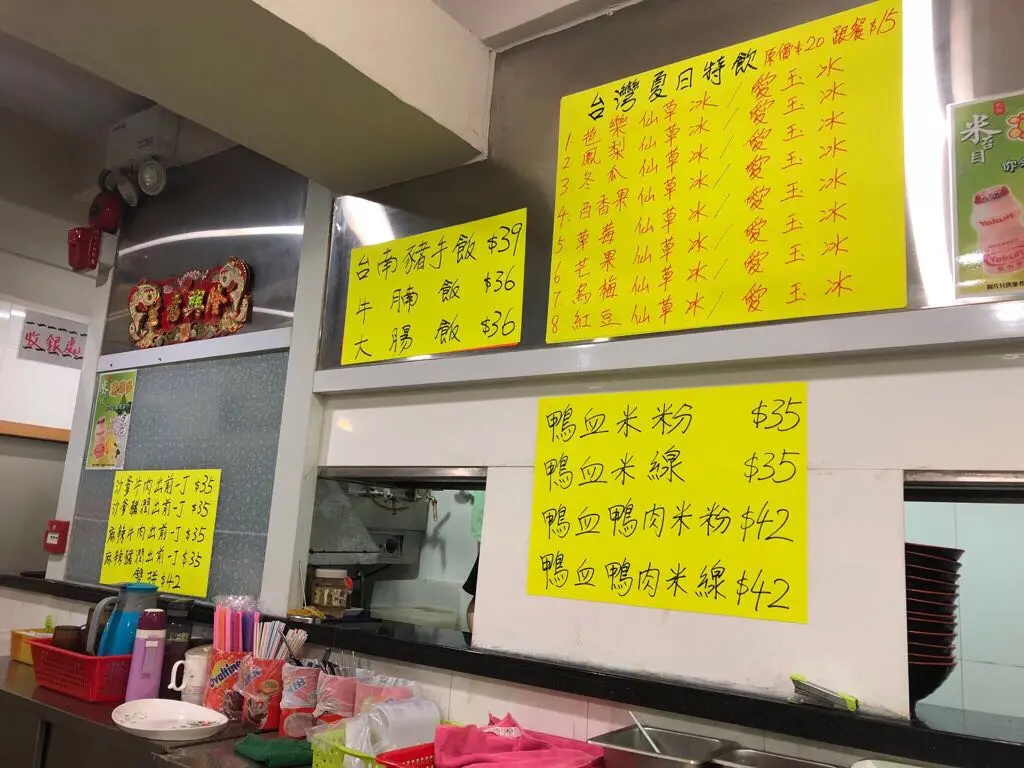 台灣夏日特飲 原價$20 跟餐$15
1. 芭樂仙草冰/愛玉冰
2 鳳梨仙草冰/愛玉冰
3 冬瓜仙草冰/愛玉冰
4. 百香果仙草冰/愛玉冰
5 草莓仙草冰/愛玉冰
6 芒果仙草冰/愛玉冰
7. 烏梅仙草冰/愛玉冰
8 紅豆仙草冰/愛玉冰
台南豬手飯 $39
牛腩飯 $36
大腸飯 $36
鴨血米粉 $35
鴨血米線 $35
鴨血鴨肉米粉 $42
鴨血鴨肉米線 $42
收銀處
沙爹牛肉出前一丁 $35
沙爹豬潤出前一丁 $35
麻辣牛肉出前一丁 $35
麻辣豬潤出前一丁 $35
雙拼 $42
米苔目
Yakult
Yakult
Ovaltine